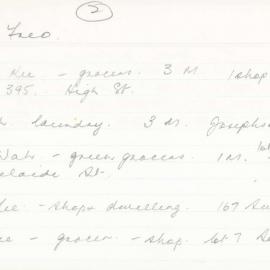 5
Freo.
Kee - grocers. 3 M. 1 shop
395. High St.
laundry. 3 M. Josephs
Wah - green grocers 1 M. lot
elaide St.
ee - shop & dwelling. 167
ee - grocer - shop. lot 7